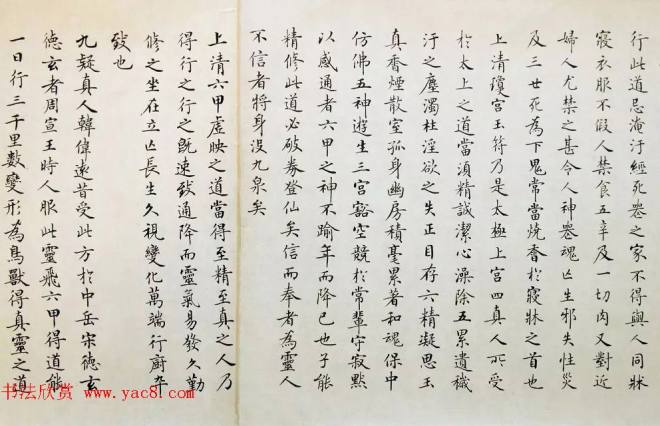 行此道忌淹汙經死喪之家不得與人同牀
寢衣服不假人禁食五辛及一切肉又對近
婦人尤禁之甚令人神喪魂亡生邪失性災
及三世死為下鬼常當燒香於寢牀之首也
上清瓊宮玉符乃是太極上宮四真人所受
於太上之道當須精誠潔心澡除五累遺穢
汙之塵濁杜淫欲之失正目存六精凝思玉
真香煙散室孤身幽房積毫累著和魂保中
仿佛五神遊生三宮豁空競於常輩守寂默
以感通者六甲之神不踰年而降已也子能
精修此道必破券登仙矣信而奉者為靈人
不信者將身沒九泉矣
上清六甲虛映之道當得至精至真之人乃
得行之行之既速致通降而靈氣易發久勤
修之坐在立亡長生久視變化萬端行廚卒
致也
九疑真人韓偉遠昔受此方於中岳宋德玄
德玄者周宣王時人服此靈飛六甲得道能
一日行三千里數變形為鳥獸得真靈之道
书法欣赏
www.yac8.com